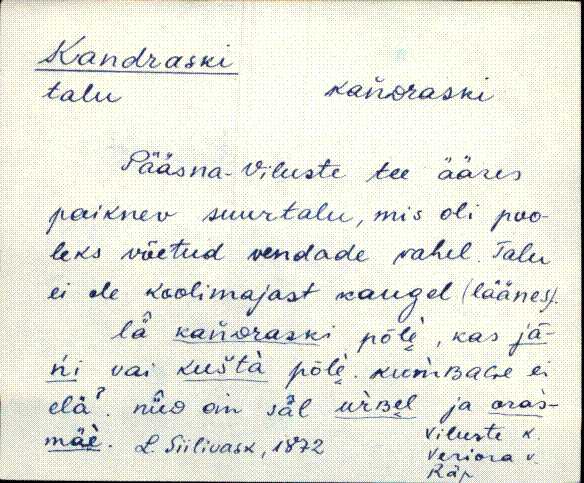 Kandraski
talu kañdraski
Pääsna-Viluste tee ääres
paiknev suurtalu, mis oli poo-
leks võetud vendade vahel. Talu
ei ole koolimajast kaugel (läänes).
lä̂ kañdraski põlè̬, kas jä̂-
ńi vai kuštà põlè̬. kuḿʙaɢe ei
elä?. nüüᴅ oin säl ürʙe̬l ja oras-
mäè.
L. Siilivask, 1872
Viluste k.
Veriora v.
Räp